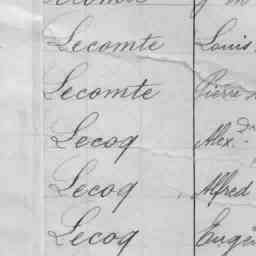 Lecomte Louis
Lecomte Pierre
Lecoq Alex.dre
Lecoq Alfred
Lecoq Eugè